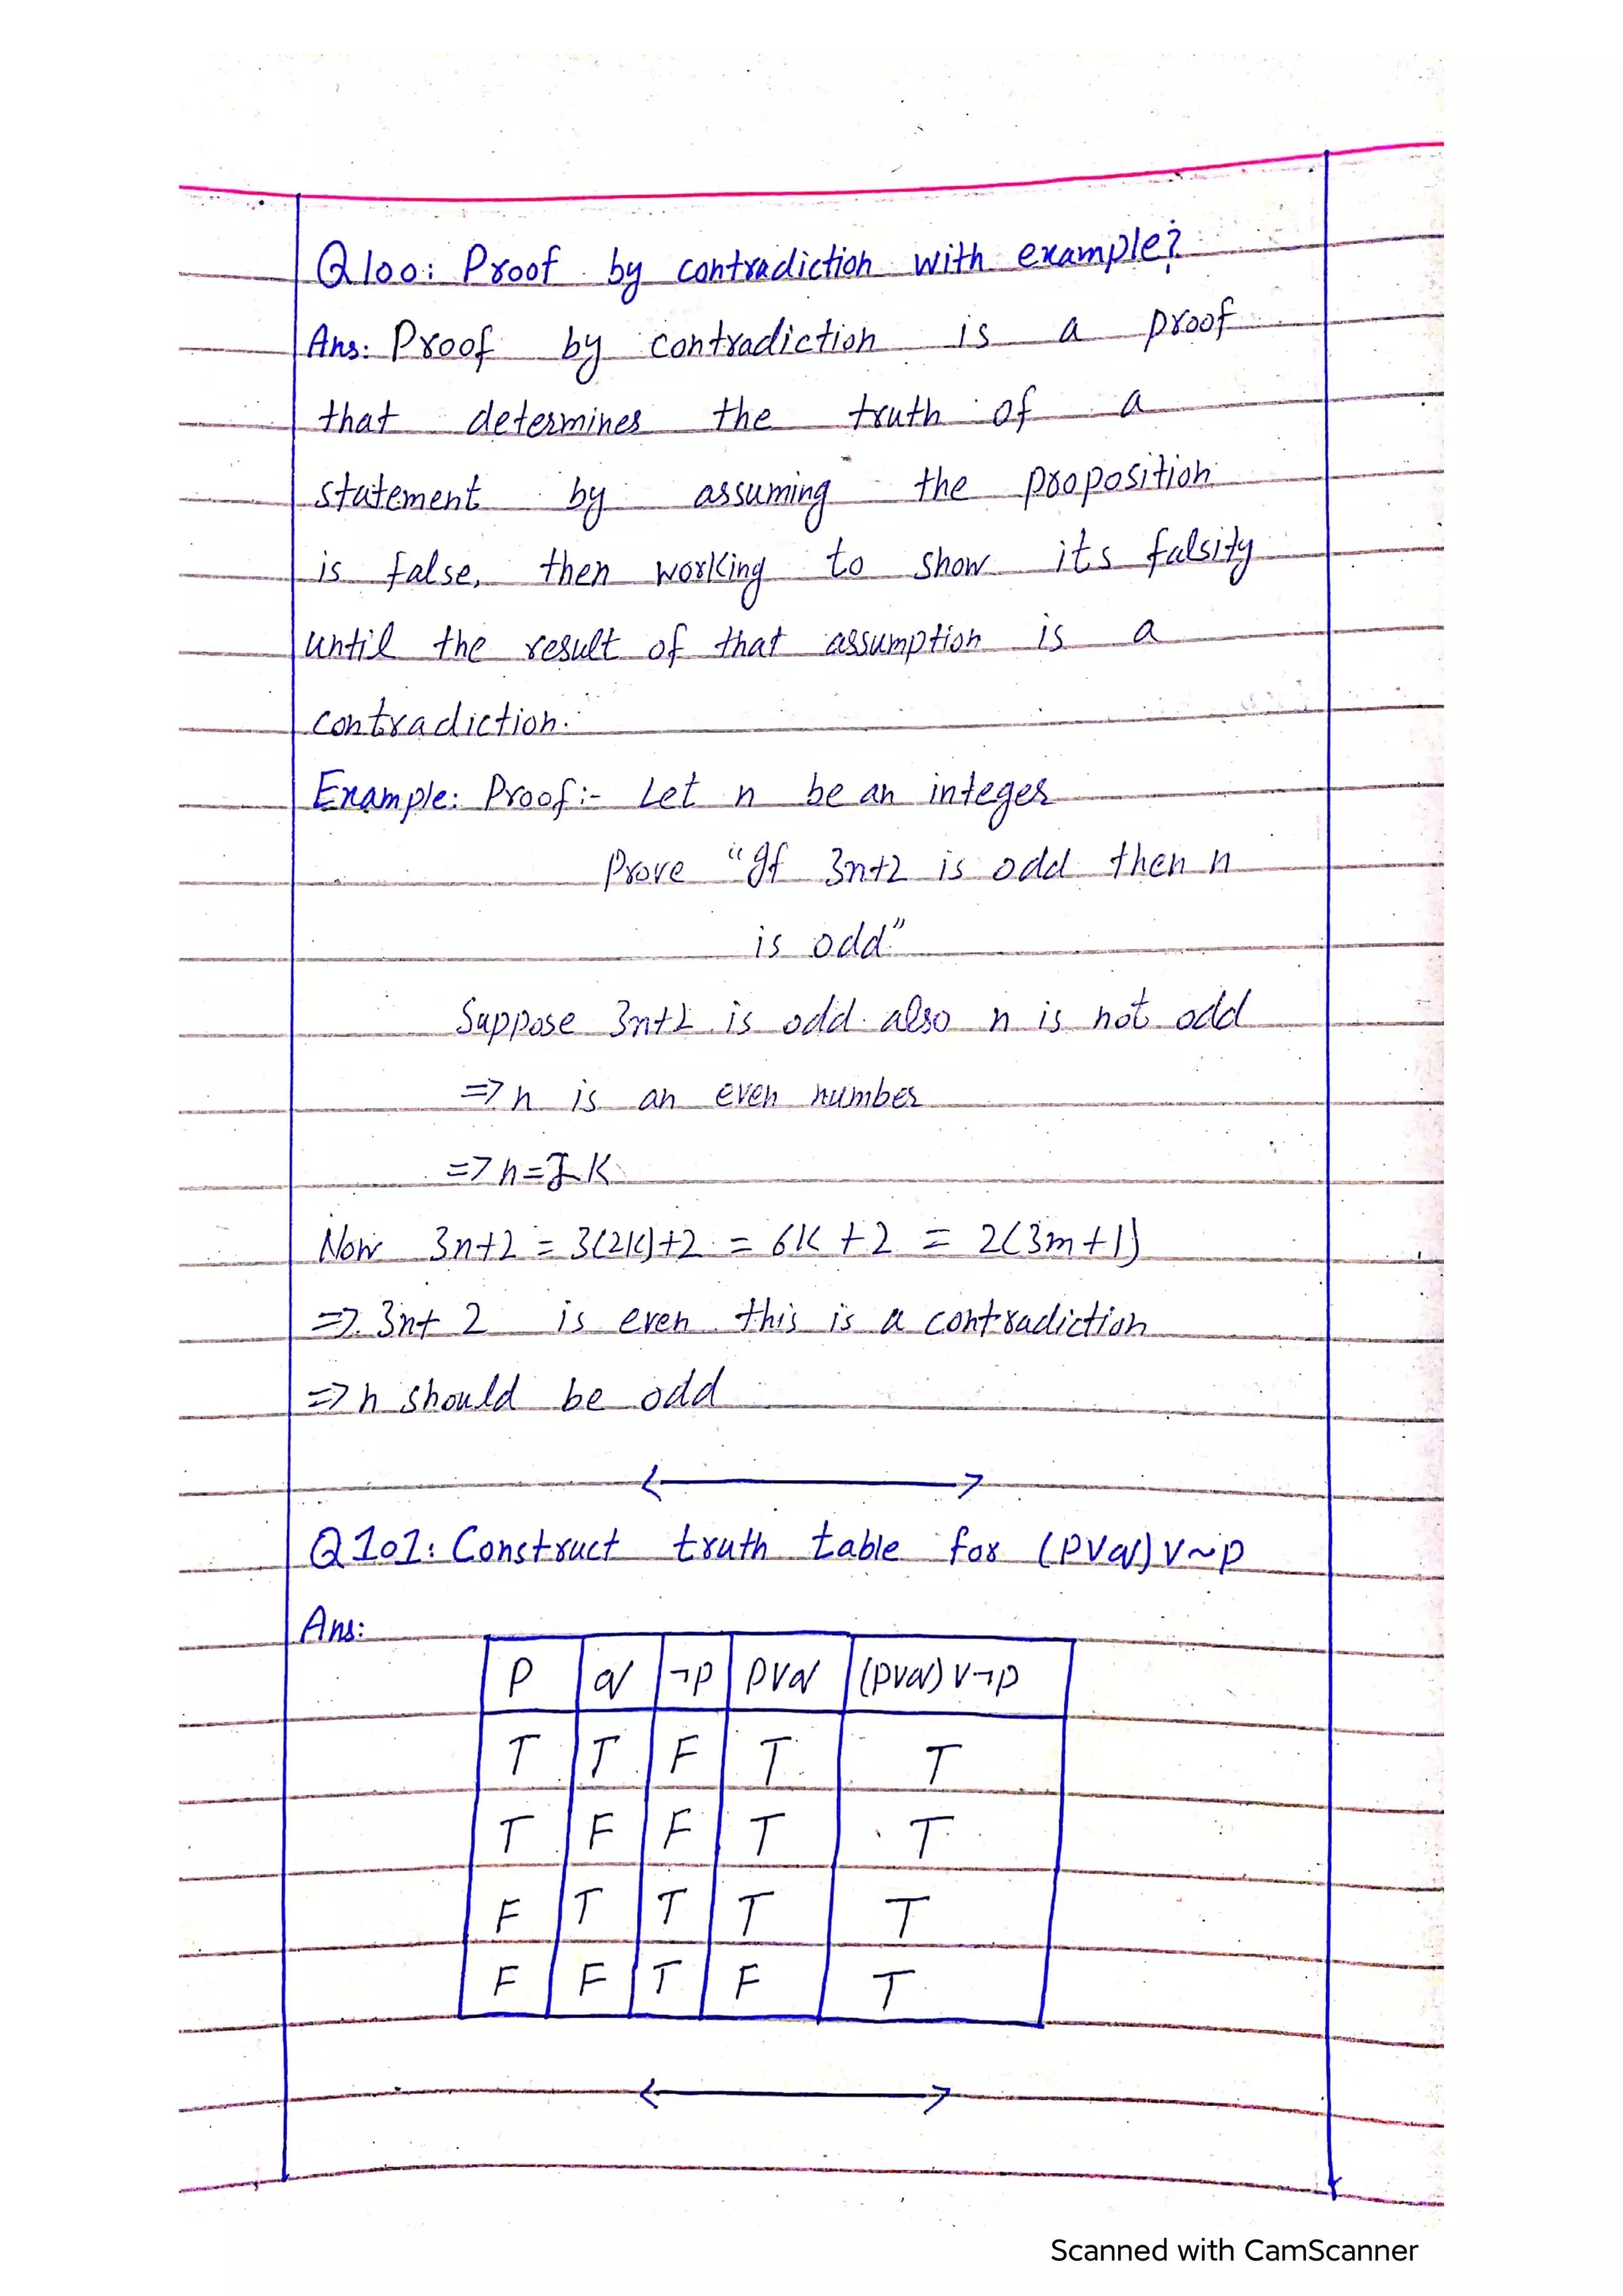 Q100: Proof by contradiction with example?
Ans: Proof by contradiction is a proof
that determines the truth of a
statement by assuming the proposition
is false, then working to show its falsity
until the result of that assumption is a
contradiction.
Example: Proof:- Let n be an integer
Prove "If 3n+2 is odd then n
is odd"
Suppose 3n+2 is odd also n is not odd
=> n is an even number
=> n = 2K
Now 3n+2 = 3(2K)+2 = 6K + 2 = 2(3m+1)
=> 3n+ 2 is even this is a contradiction
=> n should be odd
Q101: Construct truth table for (p∨q)∨~p
Ans:
P q ¬p p∨q (p∨q)∨¬p
T T F T T
T F F T T
F T T T T
F F T F T
Scanned with CamScanner